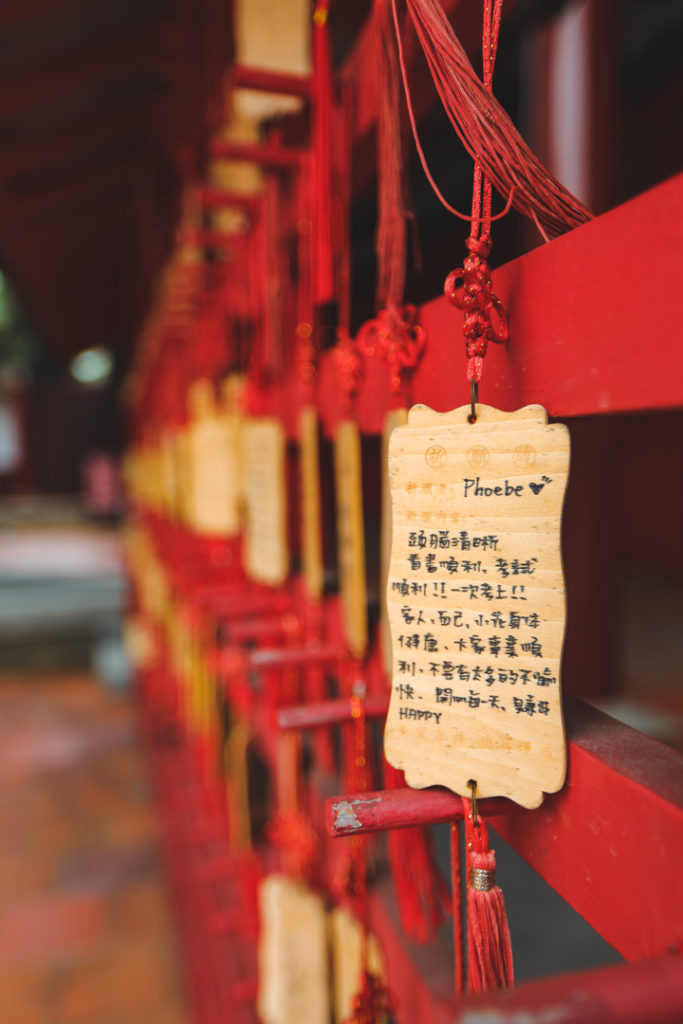 祈願者: Phoebe
祈願內容:
頭腦清晰
看書順利、考試
順利!!一次考上!!
家人、自己、小花身体
健康、大家事業順
利、不要有太多的不愉
快、開心每一天、
HAPPY